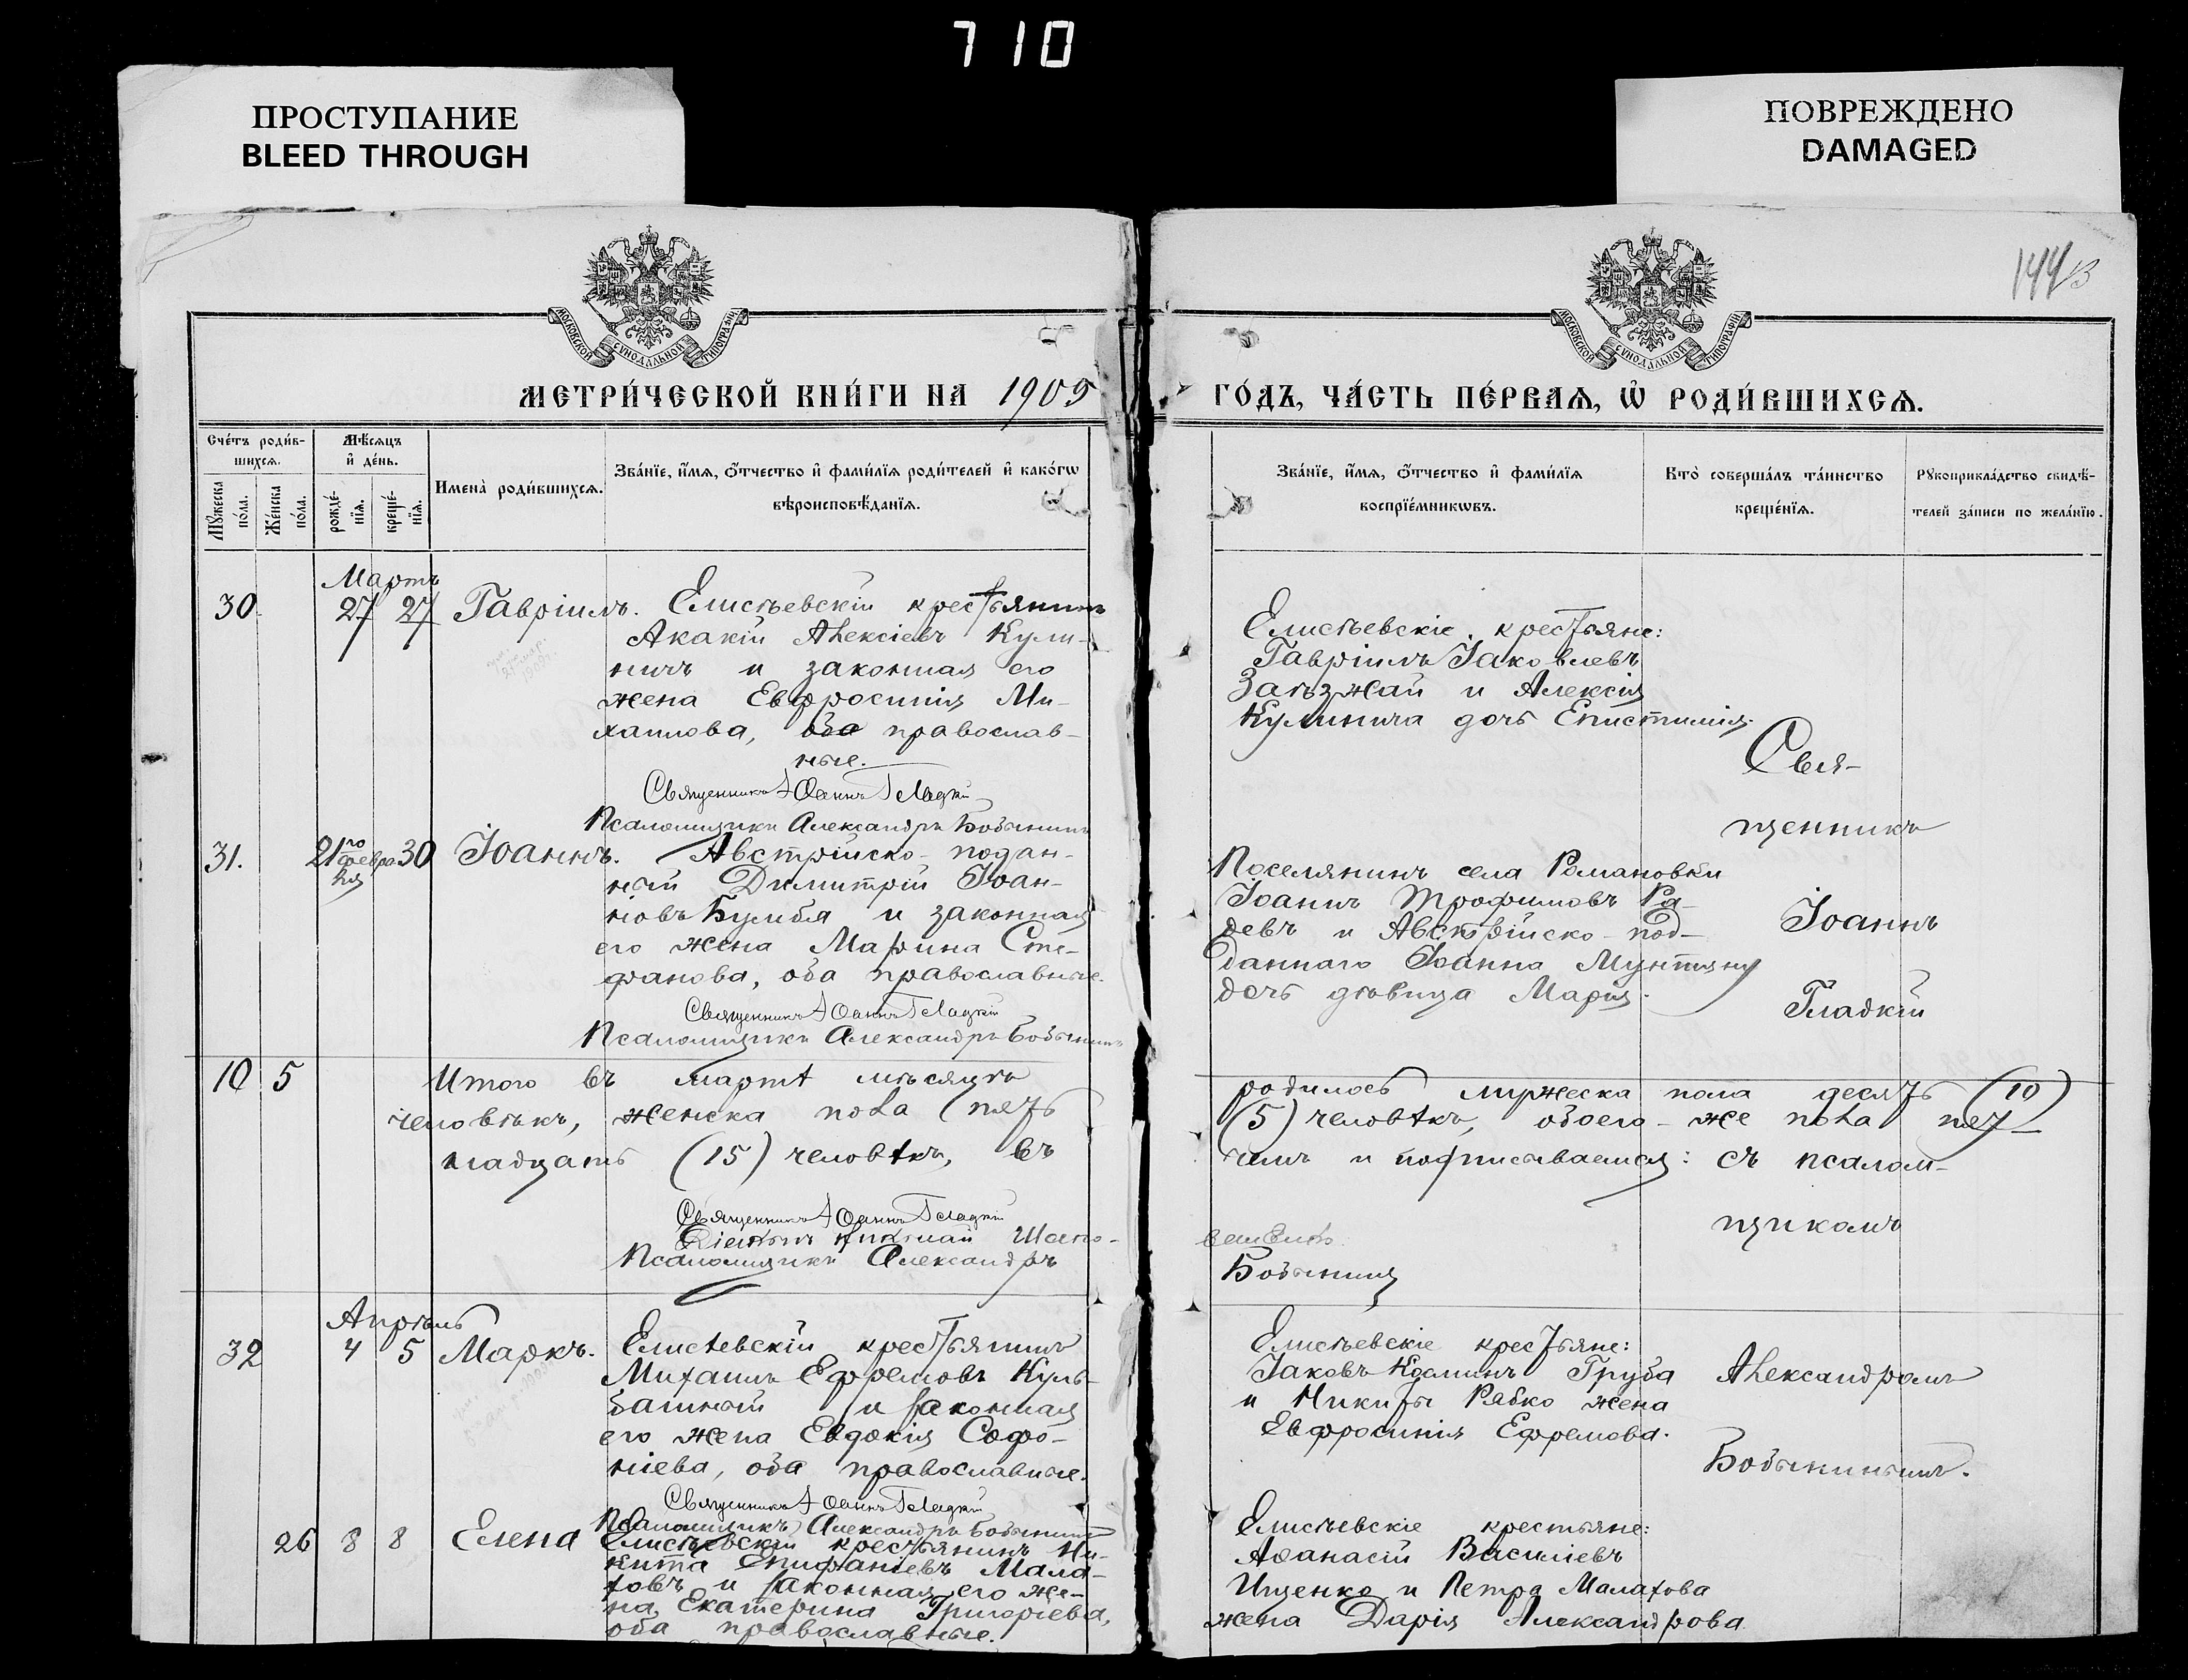 710
ПРОСТУПАНИЕ
BLEED THROUGH
ПОВРЕЖДЕНО
DAMAGED
МОСКОВСКОЙ СУНОДАЛЬНОЙ ТИПОГРАФІИ
МОСКОВСКОЙ СУНОДАЛЬНОЙ ТИПОГРАФІИ
МЕТРИ́ЧЕСКОЙ КНИ́ГИ НА 1909
ГО́ДЪ, ЧА́СТЬ ПЕ́РВАѦ, Ѡ҆ РОДИ́ВШИХСѦ.
Сче́тъ роди́в-
шихсѧ.
Мꙋ́жеска по́ла.
Же́нска по́ла.
Мѣ́сѧцъ
и҆ де́нь.
рожде́-
нїѧ.
креще́-
нїѧ.
Имена̀ роди́вшихсѧ.
Зва́нїе, и҆́мѧ, ѻ҆́тчество и҆ фами́лїѧ роди́телей и҆ како́гѡ
вѣроисповѣ́данїѧ.
Зва́нїе, и҆́мѧ, ѻ҆́тчество и҆ фами́лїѧ
воспрїе́мникѡвъ.
Кто̀ соверша́лъ та́инство
креще́нїѧ.
Рꙋкоприкла́дство свидѣ́-
телей за́писи по жела́нїю.
Мартъ
30. 27 27 Гавріилъ. Елисѣевскій крестьянинъ
Акакій Алексіевъ Кули-
ничъ и законная его
жена Евфросинія Ми-
хаилова, оба православ-
ные.
Священникъ Іоаннъ Гладкій
Псаломщикъ Александръ Бобынинъ
Елисѣевскіе крестьяне:
Гавріилъ Іаковлевъ
Заѣзжай и Алексія
Кулинича дочь Епистимія.
Свя-
щенникъ
Іоаннъ
Гладкій
31. 21го февраля 30 Іоаннъ. Австрійско-подан-
ный Димитрій Іоан-
новъ Бумбя и законная
его жена Марина Сте-
фанова, оба православные.
Священникъ Іоаннъ Гладкій
Псаломщикъ Александръ Бобынинъ
Поселянинъ села Романовки
Іоаннъ Трофимовъ Ра-
девъ и Австрійско-под-
даннаго Іоанна Мунтяну
дочь дѣвица Марія.
10 5 Итого въ мартѣ мѣсяцѣ родилось мужеска пола десять (10)
человѣкъ, женска пола пять (5) человѣкъ, обоего-же пола пят-
надцать (15) человѣкъ, въ чемъ и подписываемся: съ псалом-
щикомъ
Священникъ Іоаннъ Гладкій
Псаломщикъ Александръ Бобынинъ
Апрѣль
32 4 5 Маркъ. Елисѣевскій крестьянинъ
Михаилъ Ефремовъ Куль-
башный и законная
его жена Евдокія Софо-
ніева, оба православные.
Священникъ Іоаннъ Гладкій
Псаломщикъ Александръ Бобынинъ
Елисѣевскіе крестьяне:
Іаковъ Косминъ Груба
и Никиты Рябко жена
Евфросинія Ефремова.
Александромъ
Бобынинымъ.
26 8 8 Елена Елисѣевскій крестьянинъ Ни-
кита Епифаніевъ Мала-
ховъ и законная его же-
на Екатерина Григоріева,
оба православные.
Елисѣевскіе крестьяне:
Аѳанасій Василіевъ
Ищенко и Петра Малахова
жена Дарія Александрова